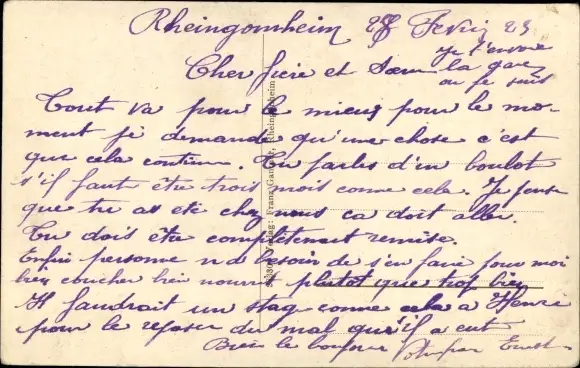 Rheingonheim 28 Fevrier 23
je t'envoie
la gare
ou je suis
Cher frère et Soeur
Tout va pour le mieux pour le mo-
ment je demande qu'une chose c'est
que cela continu. Tu parles d'un boulot
s'il faut être trois mois comme cela. Je pense
que tu as été chez nous ca doit aller.
Tu dois être completement remise.
Enfin personne n'a besoin de s'en faire pour moi
bien coucher bien nourri plutot que trop bien
Il faudrait un stage comme cela a Henri
pour le reposer du mal qu'il a eut
Bien le bonjour Ernest
Verlag: Franz Rheingönheim